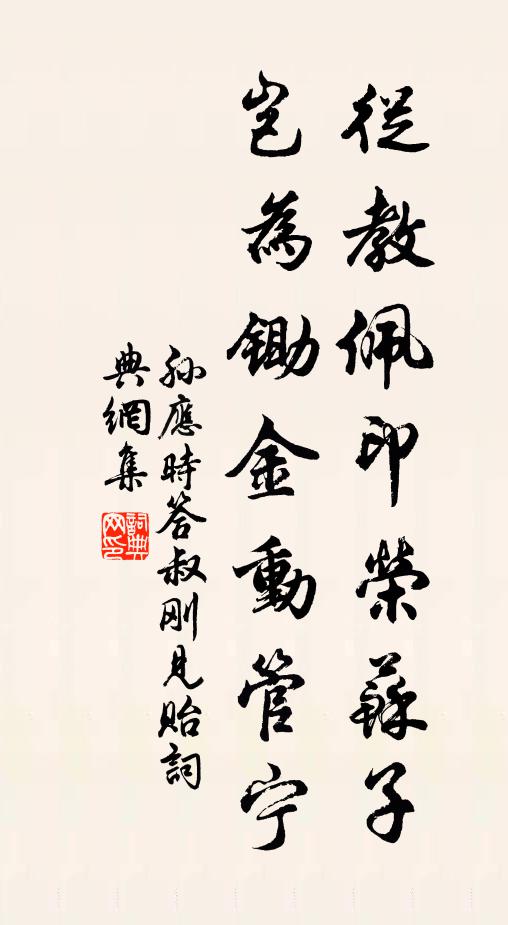 從教佩印榮蘇子
豈為鋤金動管宁
孙應時答叔刚見貽詞
典網集
詞典
网印